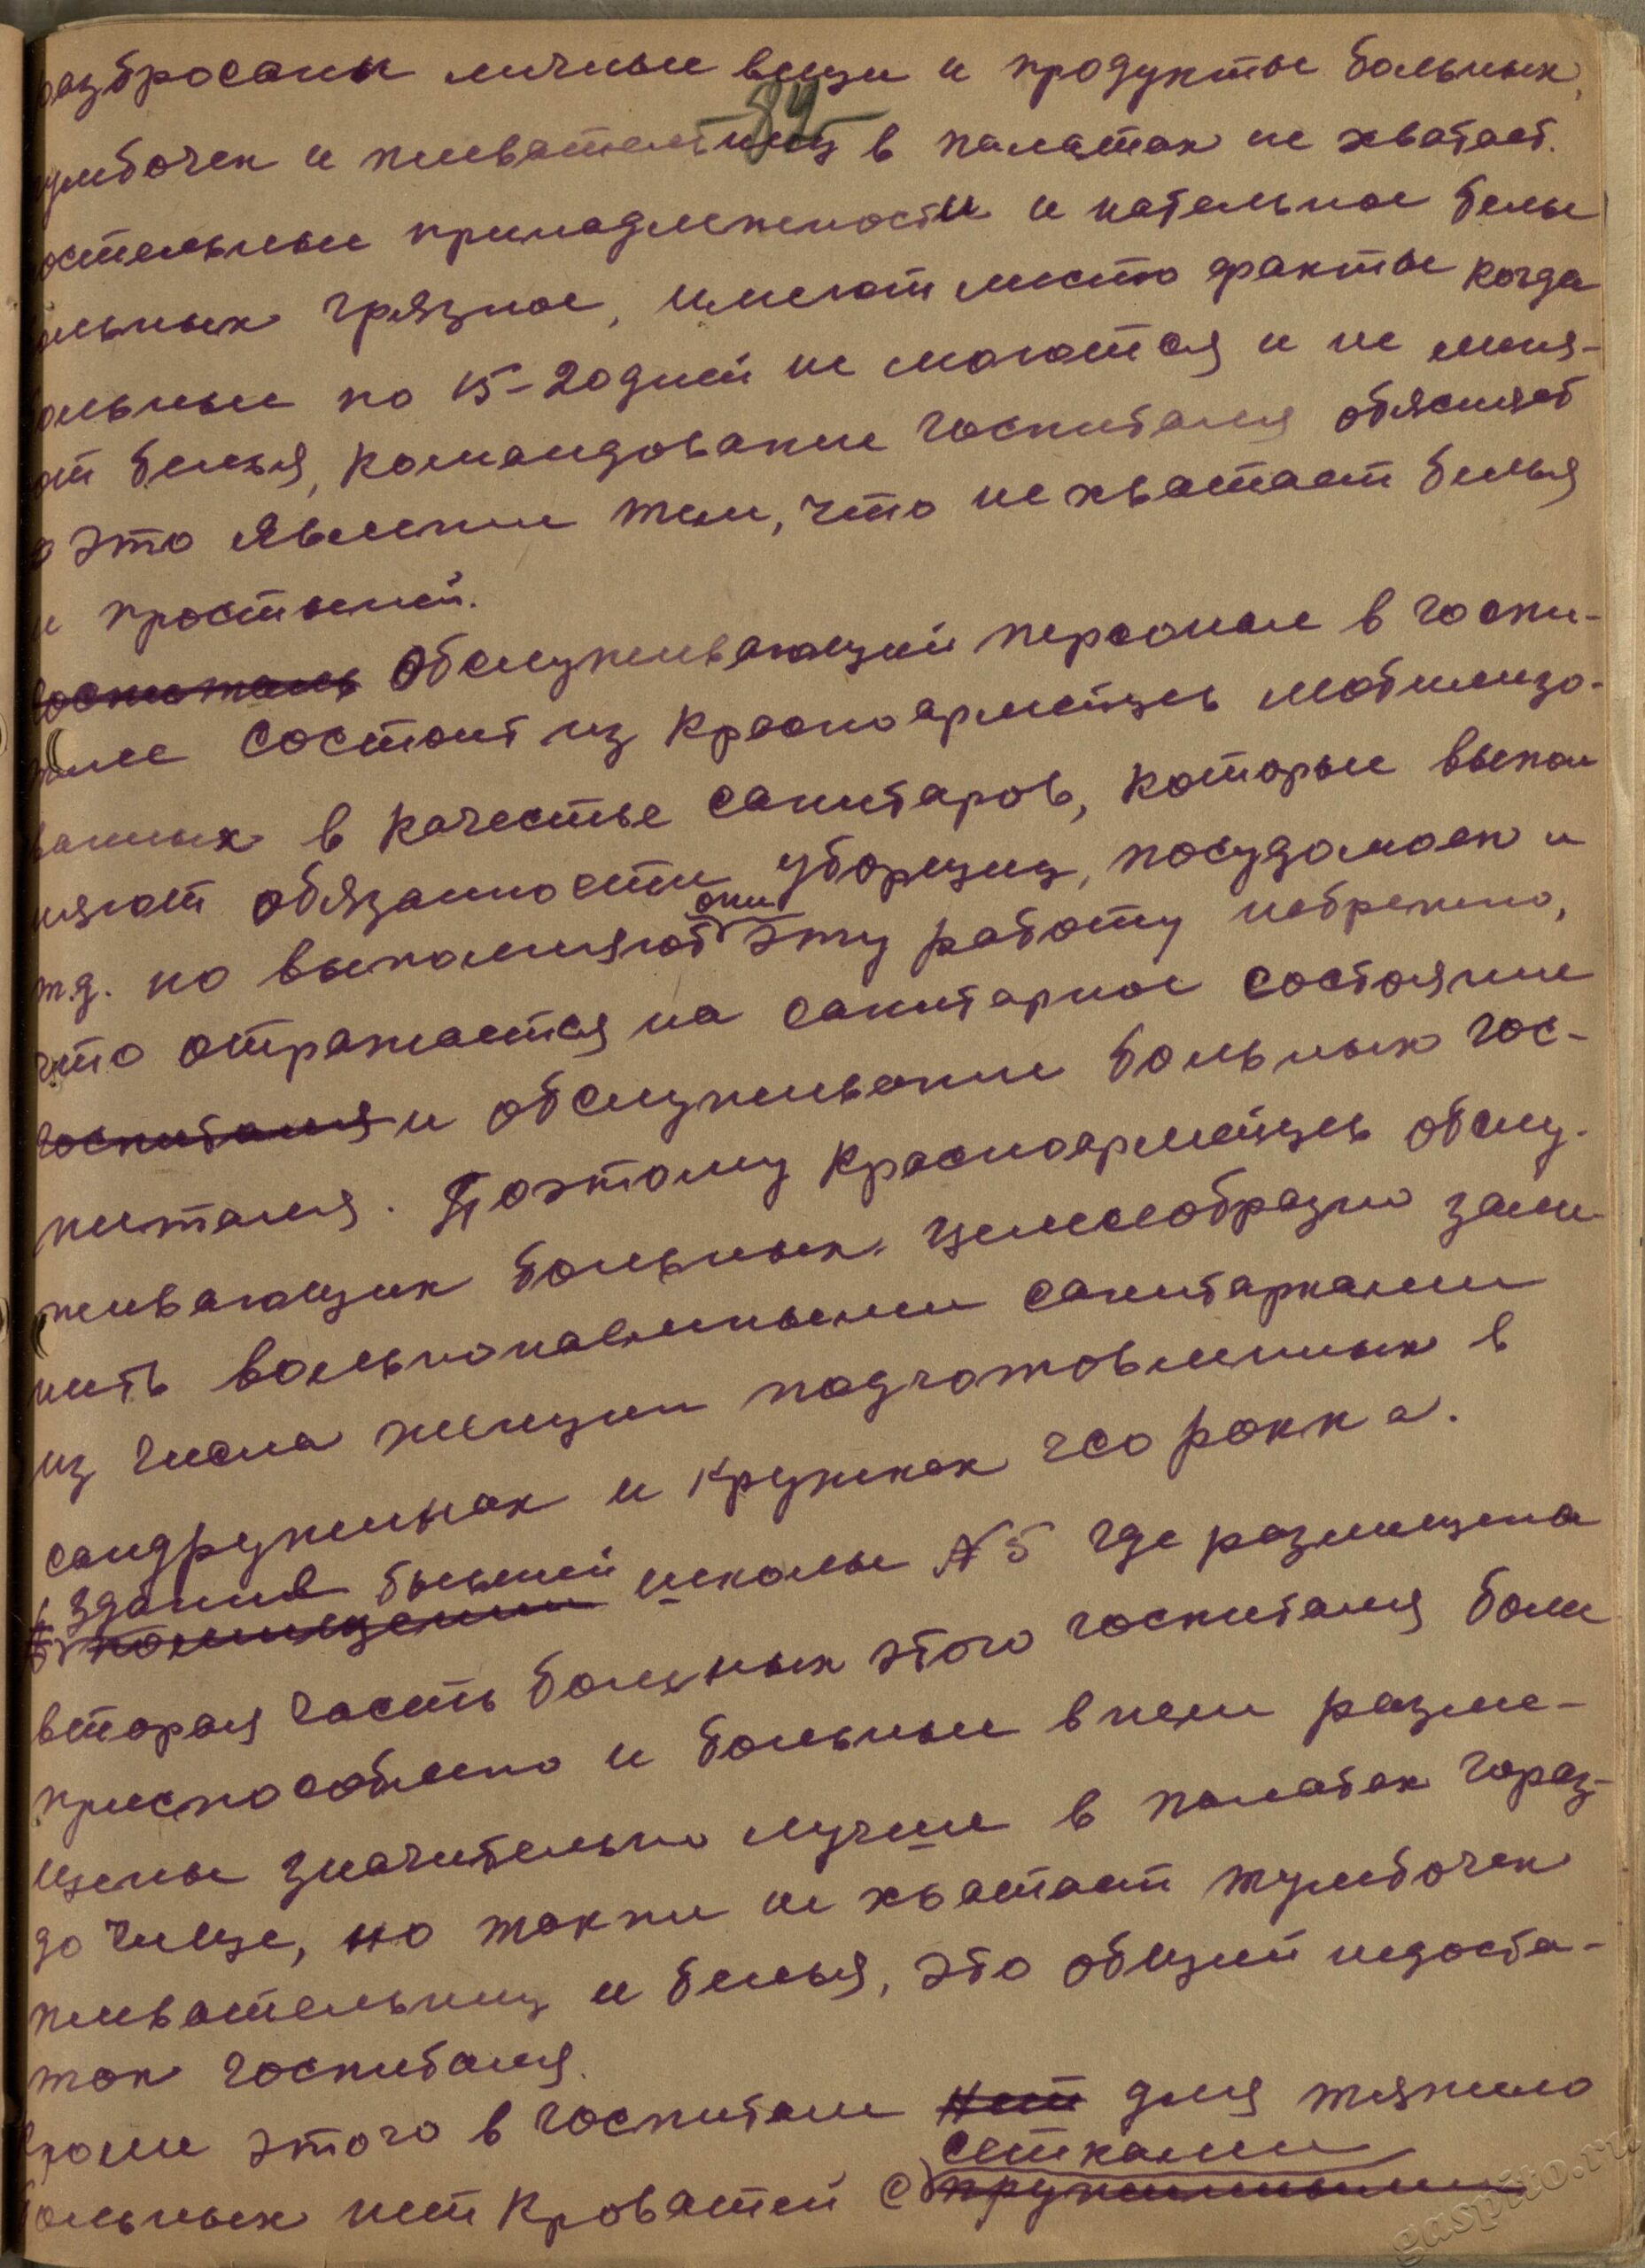 разбросаны личные вещи и продукты больных,
-84-
умбочек и плевательниц в палатах не хватает.
остельные принадлежности и нательное белье
ольных грязное, имеют место факты когда
ольные по 15-20 дней не моются и не меня-
ют белья, командование госпиталя обясняет
это явление тем, что не хватает белья
и простыней.
госпиталь Обслуживающий персонал в госпи-
тале состоит из красноармейцев мобилизо-
ванных в качестве санитаров, которые выпол
няют обязанности уборщиц, посудомоек и
они
т.д. но выполняют эту работу небрежно,
что отражается на санитарное состояние
госпиталя и обслуживание больных гос-
питаля. Поэтому красноармейцев обслу-
живающих больных целесообразно заме-
нить вольнонаемными санитарками
из числа женщин подготовленных в
сандружинах и кружках гсо рокка.
Здание бывшей школы №5 где размещена
помещении
вторая часть больных этого госпиталя боле
приспособлено и больные в нем разме-
щены значительно лучше в палатах гораз-
до чище, но также не хватает тумбочек
плевательниц и белья, это общий недоста-
ток госпиталя.
кроме этого в госпитале нет для тяжело
сетками
больных нет кроватей с пружинными
gaspito.ru